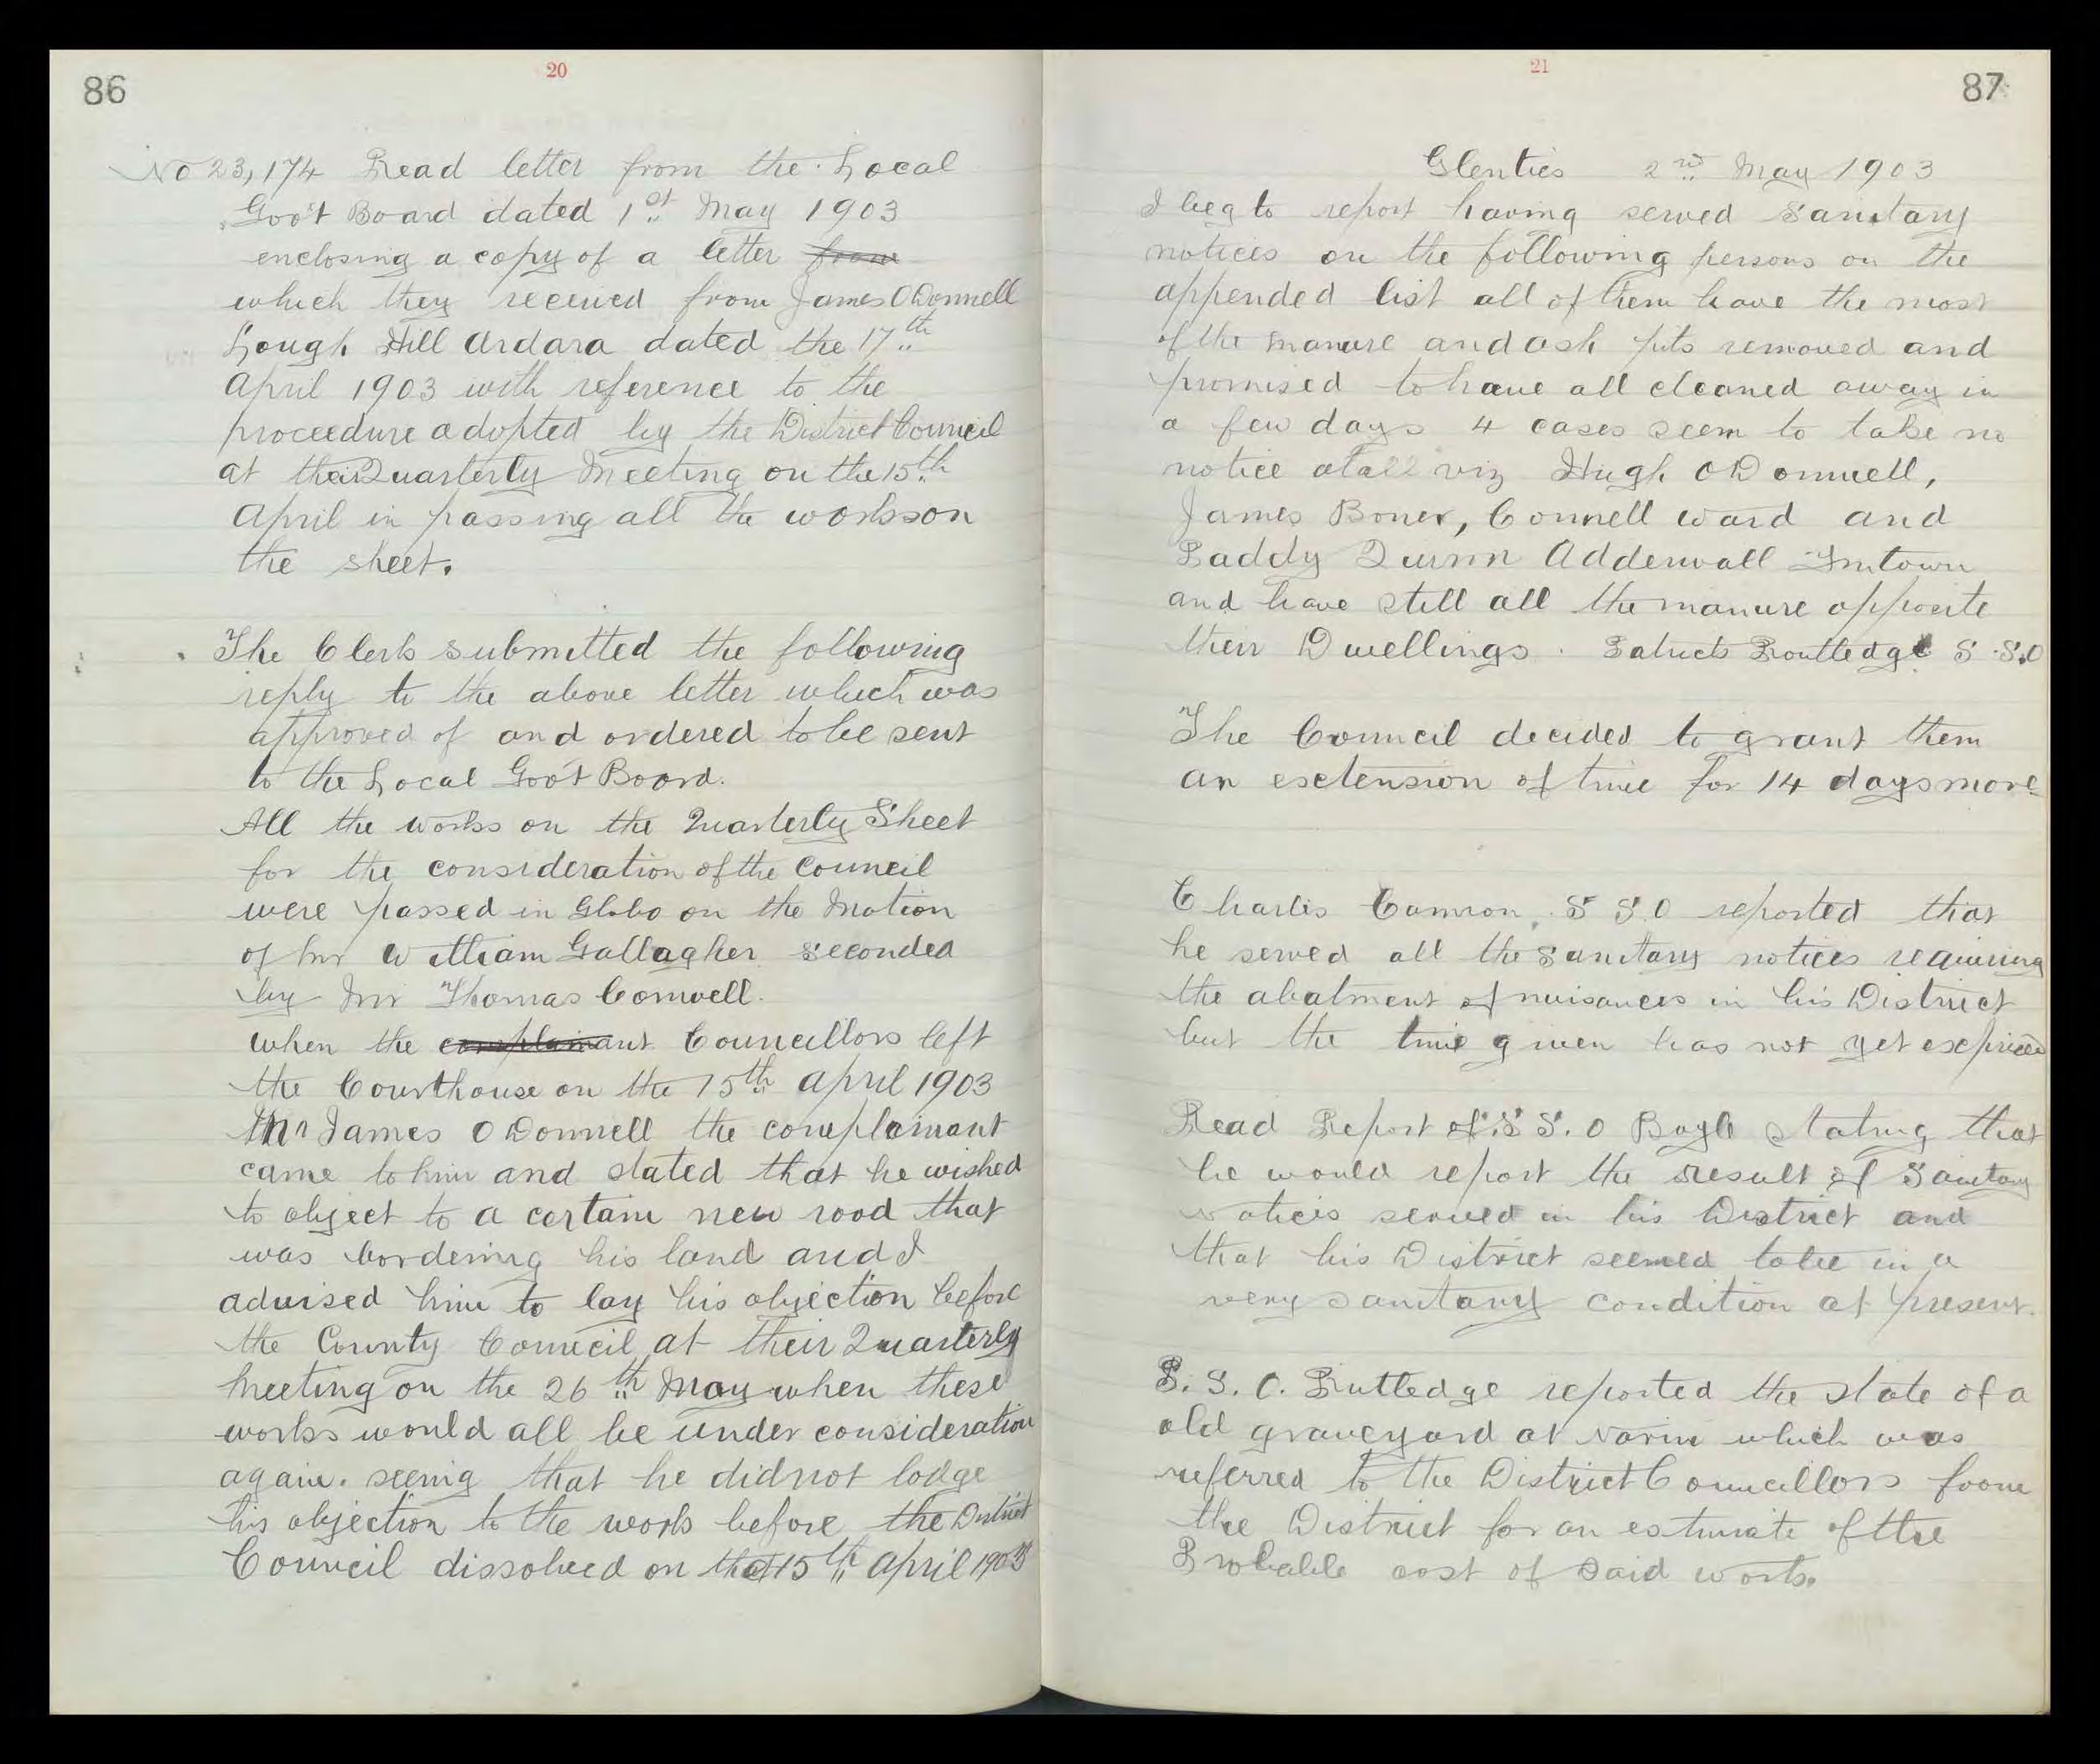 86
20
No 23,174 Read letter from the Local
Gov't Board dated 1st May 1903
enclosing a copy of a letter from
which they received from James ODonnell
Lough Hill Ardara dated the 17th
April 1903 with reference to the
proceedure adopted by the District Council
at their Quarterly Meeting on the 15th
April in passing all the works on
the sheet.
The Clerk submitted the following
reply to the above letter which was
approved of and ordered to be sent
to the Local Gov't Board.
All the works on the Quarterly Sheet
for the consideration of the Council
were passed in Globo on the Motion
of Mr William Gallagher seconded
by Mr Thomas Conwell.
when the complainant Councillors left
the Courthouse on the 15th April 1903
Mr James ODonnell the complainant
came to him and stated that he wished
to object to a certain new road that
was bordering his land and I
advised him to lay his objection before
the County Council at their Quarterly
Meeting on the 26th May when these
works would all be under consideration
again. seeing that he did not lodge
his objection to the work before the District
Council dissolved on the 15th April 1903
21
87
Glenties 2nd May 1903
I beg to report having served Sanitary
notices on the following persons on the
appended list all of them have the most
of the manure and ash pits removed and
promised to have all cleaned away in
a few days 4 cases seem to take no
notice atall viz Hugh ODonnell,
James Boner, Connell Ward and
Paddy Quinn Adderwall Fintown
and have still all the manure opposite
their Dwellings. Patrick Routledge S.S.O
The Council decided to grant them
an extension of time for 14 days more
Charles Cannon, S S.O reported that
he served all the Sanitary notices requiring
the abatment of nuisances in his District
but the time given has not yet expired
Read Report of S S.O Boyle stating that
he would report the result of Sanitary
Notices served in his District and
that his District seemed to be in a
very sanitary condition at present.
S. S. O. Rutledge reported the state of a
old graveyard at Narin which was
referred to the District Councillors from
the District for an estimate of the
Probable cost of said work.